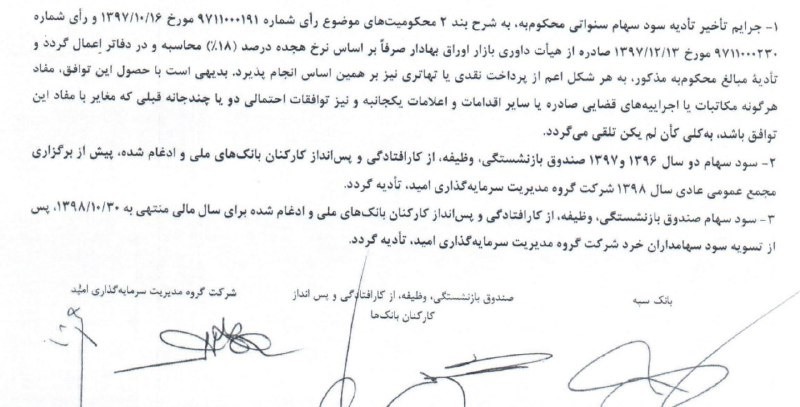 ۱- جرایم تأخیر تأدیه سود سهام سنواتی محکوم‌به، به شرح بند ۲ محکومیت‌های موضوع رأی شماره ۹۷۱۱۰۰۰۱۹۱ مورخ ۱۳۹۷/۱۰/۱۶ و رأی شماره
۹۷۱۱۰۰۰۲۳۰ مورخ ۱۳۹۷/۱۲/۱۳ صادره از هیأت داوری بازار اوراق بهادار صرفاً بر اساس نرخ هجده درصد (۱۸٪) محاسبه و در دفاتر إعمال گردد و
تأدیۀ مبالغ محکوم‌به مذکور، به هر شکل اعم از پرداخت نقدی یا تهاتری نیز بر همین اساس انجام پذیرد. بدیهی است با حصول این توافق، مفاد
هرگونه مکاتبات یا اجراییه‌های قضایی صادره یا سایر اقدامات و اعلامات یکجانبه و نیز توافقات احتمالی دو یا چندجانه قبلی که مغایر با مفاد این
توافق باشد، به‌کلی کأن لم یکن تلقی می‌گردد.
۲- سود سهام دو سال ۱۳۹۶ و ۱۳۹۷ صندوق بازنشستگی، وظیفه، از کارافتادگی و پس‌انداز کارکنان بانک‌های ملی و ادغام شده، پیش از برگزاری
مجمع عمومی عادی سال ۱۳۹۸ شرکت گروه مدیریت سرمایه‌گذاری امید، تأدیه گردد.
۳- سود سهام صندوق بازنشستگی، وظیفه، از کارافتادگی و پس‌انداز کارکنان بانک‌های ملی و ادغام شده برای سال مالی منتهی به ۱۳۹۸/۱۰/۳۰، پس
از تسویه سود سهامداران خرد شرکت گروه مدیریت سرمایه‌گذاری امید، تأدیه گردد.
بانک سپه
صندوق بازنشستگی، وظیفه، از کارافتادگی و پس انداز
کارکنان بانک‌ها
شرکت گروه مدیریت سرمایه‌گذاری امید